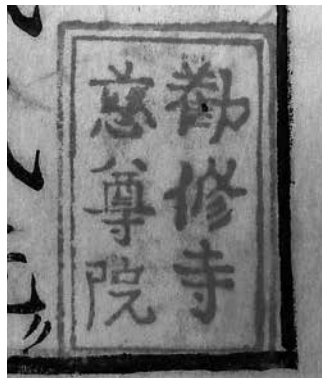 勸修寺
慈尊院